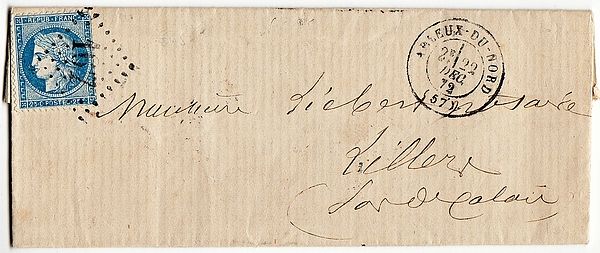 REPUB. FRANC.
25 C. POSTE 25 C.
ARLEUX-DU-NORD
2E
22
DEC.
72
(57)
Monsieur Liebert notaire
Lillers
(Pas de Calais)